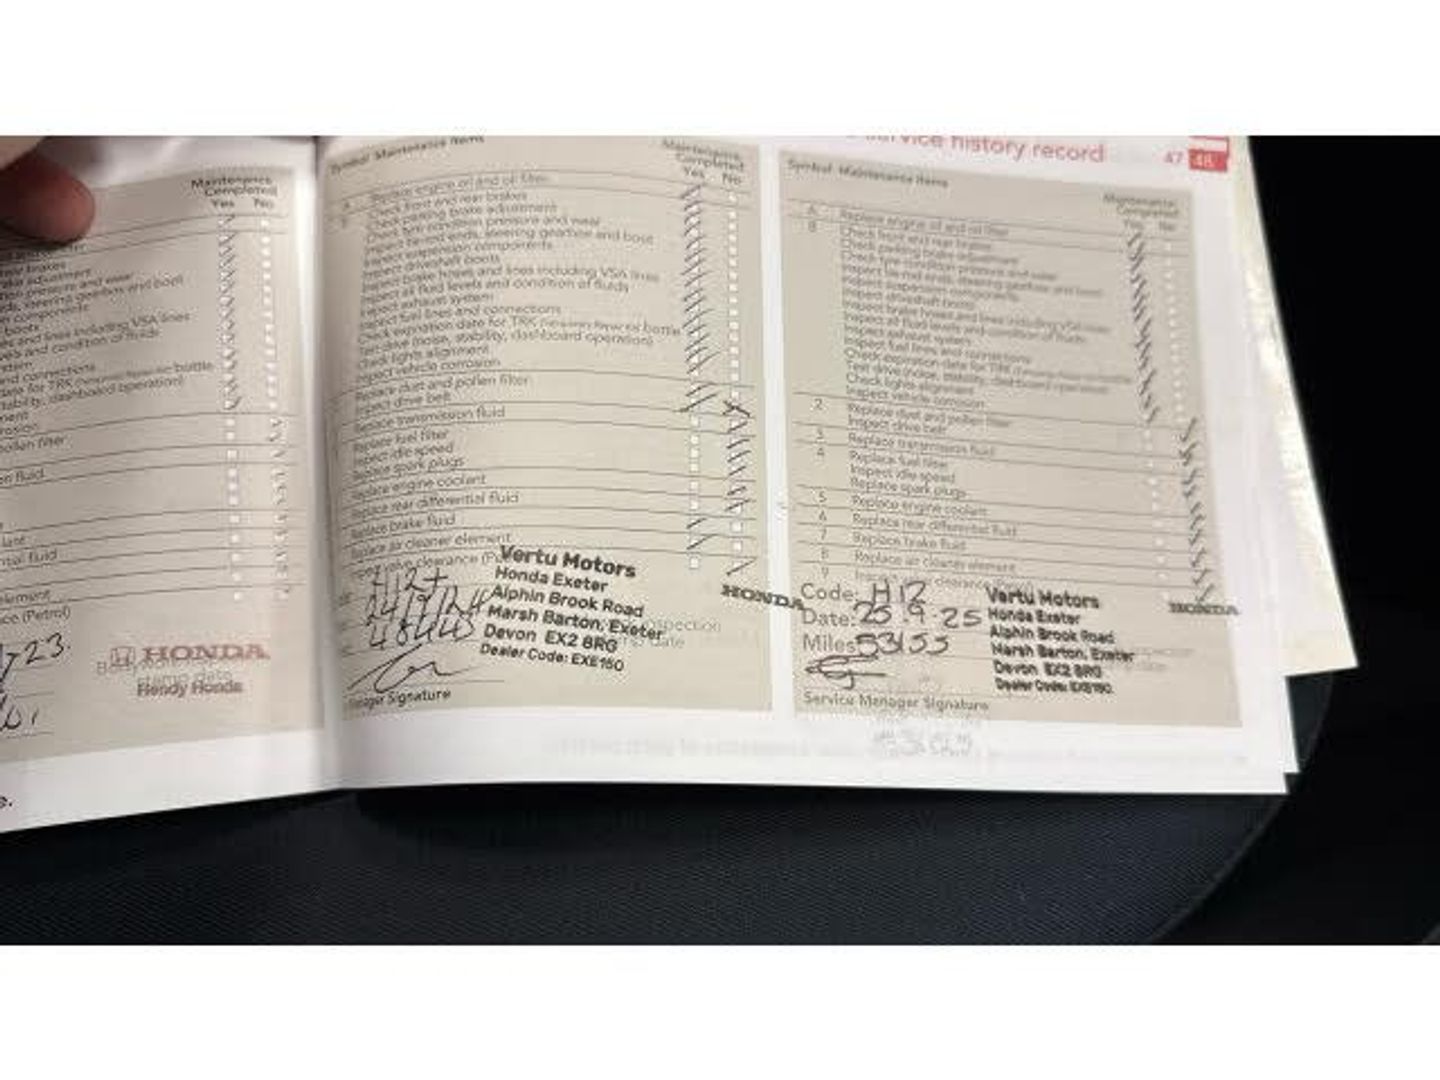 Maintenance
Completed
Yes No
rear brakes
adjustment
boots
and lines including VSA lines
and condition of fluids
bottle
pollen filter
fluid
element
(Petrol)
HONDA
Hendy Honda
Symbol Maintenance items
Maintenance
Completed
Yes No
A Replace engine oil and oil filter
Check front and rear brakes
Check parking brake adjustment
Check tyre condition pressure and wear
Inspect tie-rod ends, steering gearbox and boots
Inspect suspension components
Inspect driveshaft boots
Inspect brake hoses and lines including VSA lines
Inspect all fluid levels and condition of fluids
Inspect exhaust system
Inspect fuel lines and connections
Check expiration date for TRK bottle
Test drive (noise, stability, dashboard operation)
Check lights alignment
Inspect vehicle corrosion
Replace dust and pollen filter
Inspect drive belt
Replace transmission fluid
Replace fuel filter
Inspect idle speed
Replace spark plugs
Replace engine coolant
Replace rear differential fluid
Replace brake fluid
Replace air cleaner element
Vertu Motors
Honda Exeter
Alphin Brook Road
Marsh Barton, Exeter
Devon EX2 8RG
Dealer Code: EXE150
HONDA
Manager Signature
service history record
47 48
Symbol Maintenance items
Maintenance
Completed
Yes No
A Replace engine oil and oil filter
B Check front and rear brakes
Check parking brake adjustment
Check tyre condition pressure and wear
Inspect tie-rod ends, steering gearbox and boots
Inspect suspension components
Inspect driveshaft boots
Inspect brake hoses and lines including VSA lines
Inspect all fluid levels and condition of fluids
Inspect exhaust system
Inspect fuel lines and connections
Check expiration date for TRK
Test drive (noise, stability, dashboard operation)
Check lights alignment
Inspect vehicle corrosion
2 Replace dust and pollen filter
Inspect drive belt
3 Replace transmission fluid
4 Replace fuel filter
Inspect idle speed
Replace spark plugs
5 Replace engine coolant
6 Replace rear differential fluid
7 Replace brake fluid
8 Replace air cleaner element
9
Code: H12
Date: 25.9.25
Miles 53155
Vertu Motors
Honda Exeter
Alphin Brook Road
Marsh Barton, Exeter
Devon EX2 8RG
Dealer Code: EXE150
HONDA
Service Manager Signature